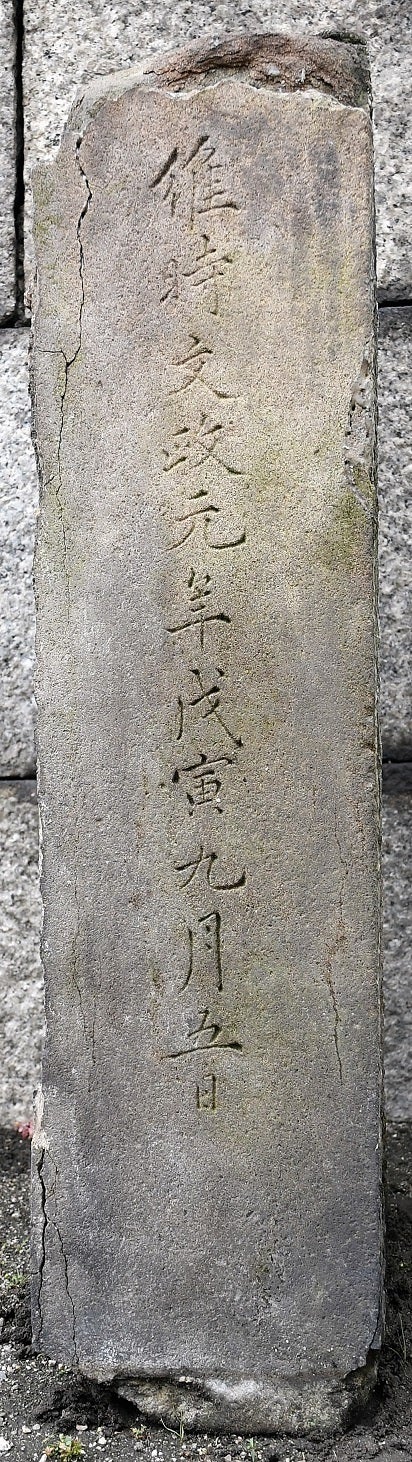 維時文政元年戊寅九月五日